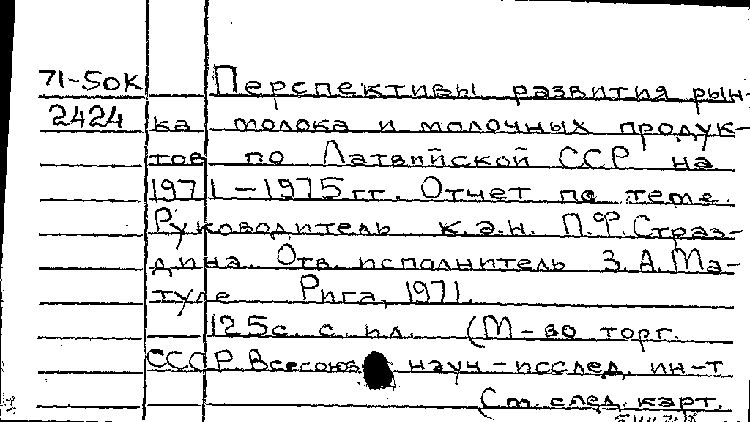 71-50К Перспективы развития рын-
2424 ка молока и молочных продук-
тов по Латвийской ССР на
1971-1975 гг. Отчет по теме.
Руководитель к.э.н. П.Ф.Страз-
дина. Отв. исполнитель З.А.Ма-
туле Рига, 1971.
125с. с ил. (М-во торг.
СССР. Всесоюз науч-исслед. ин-т
(См. след. карт.